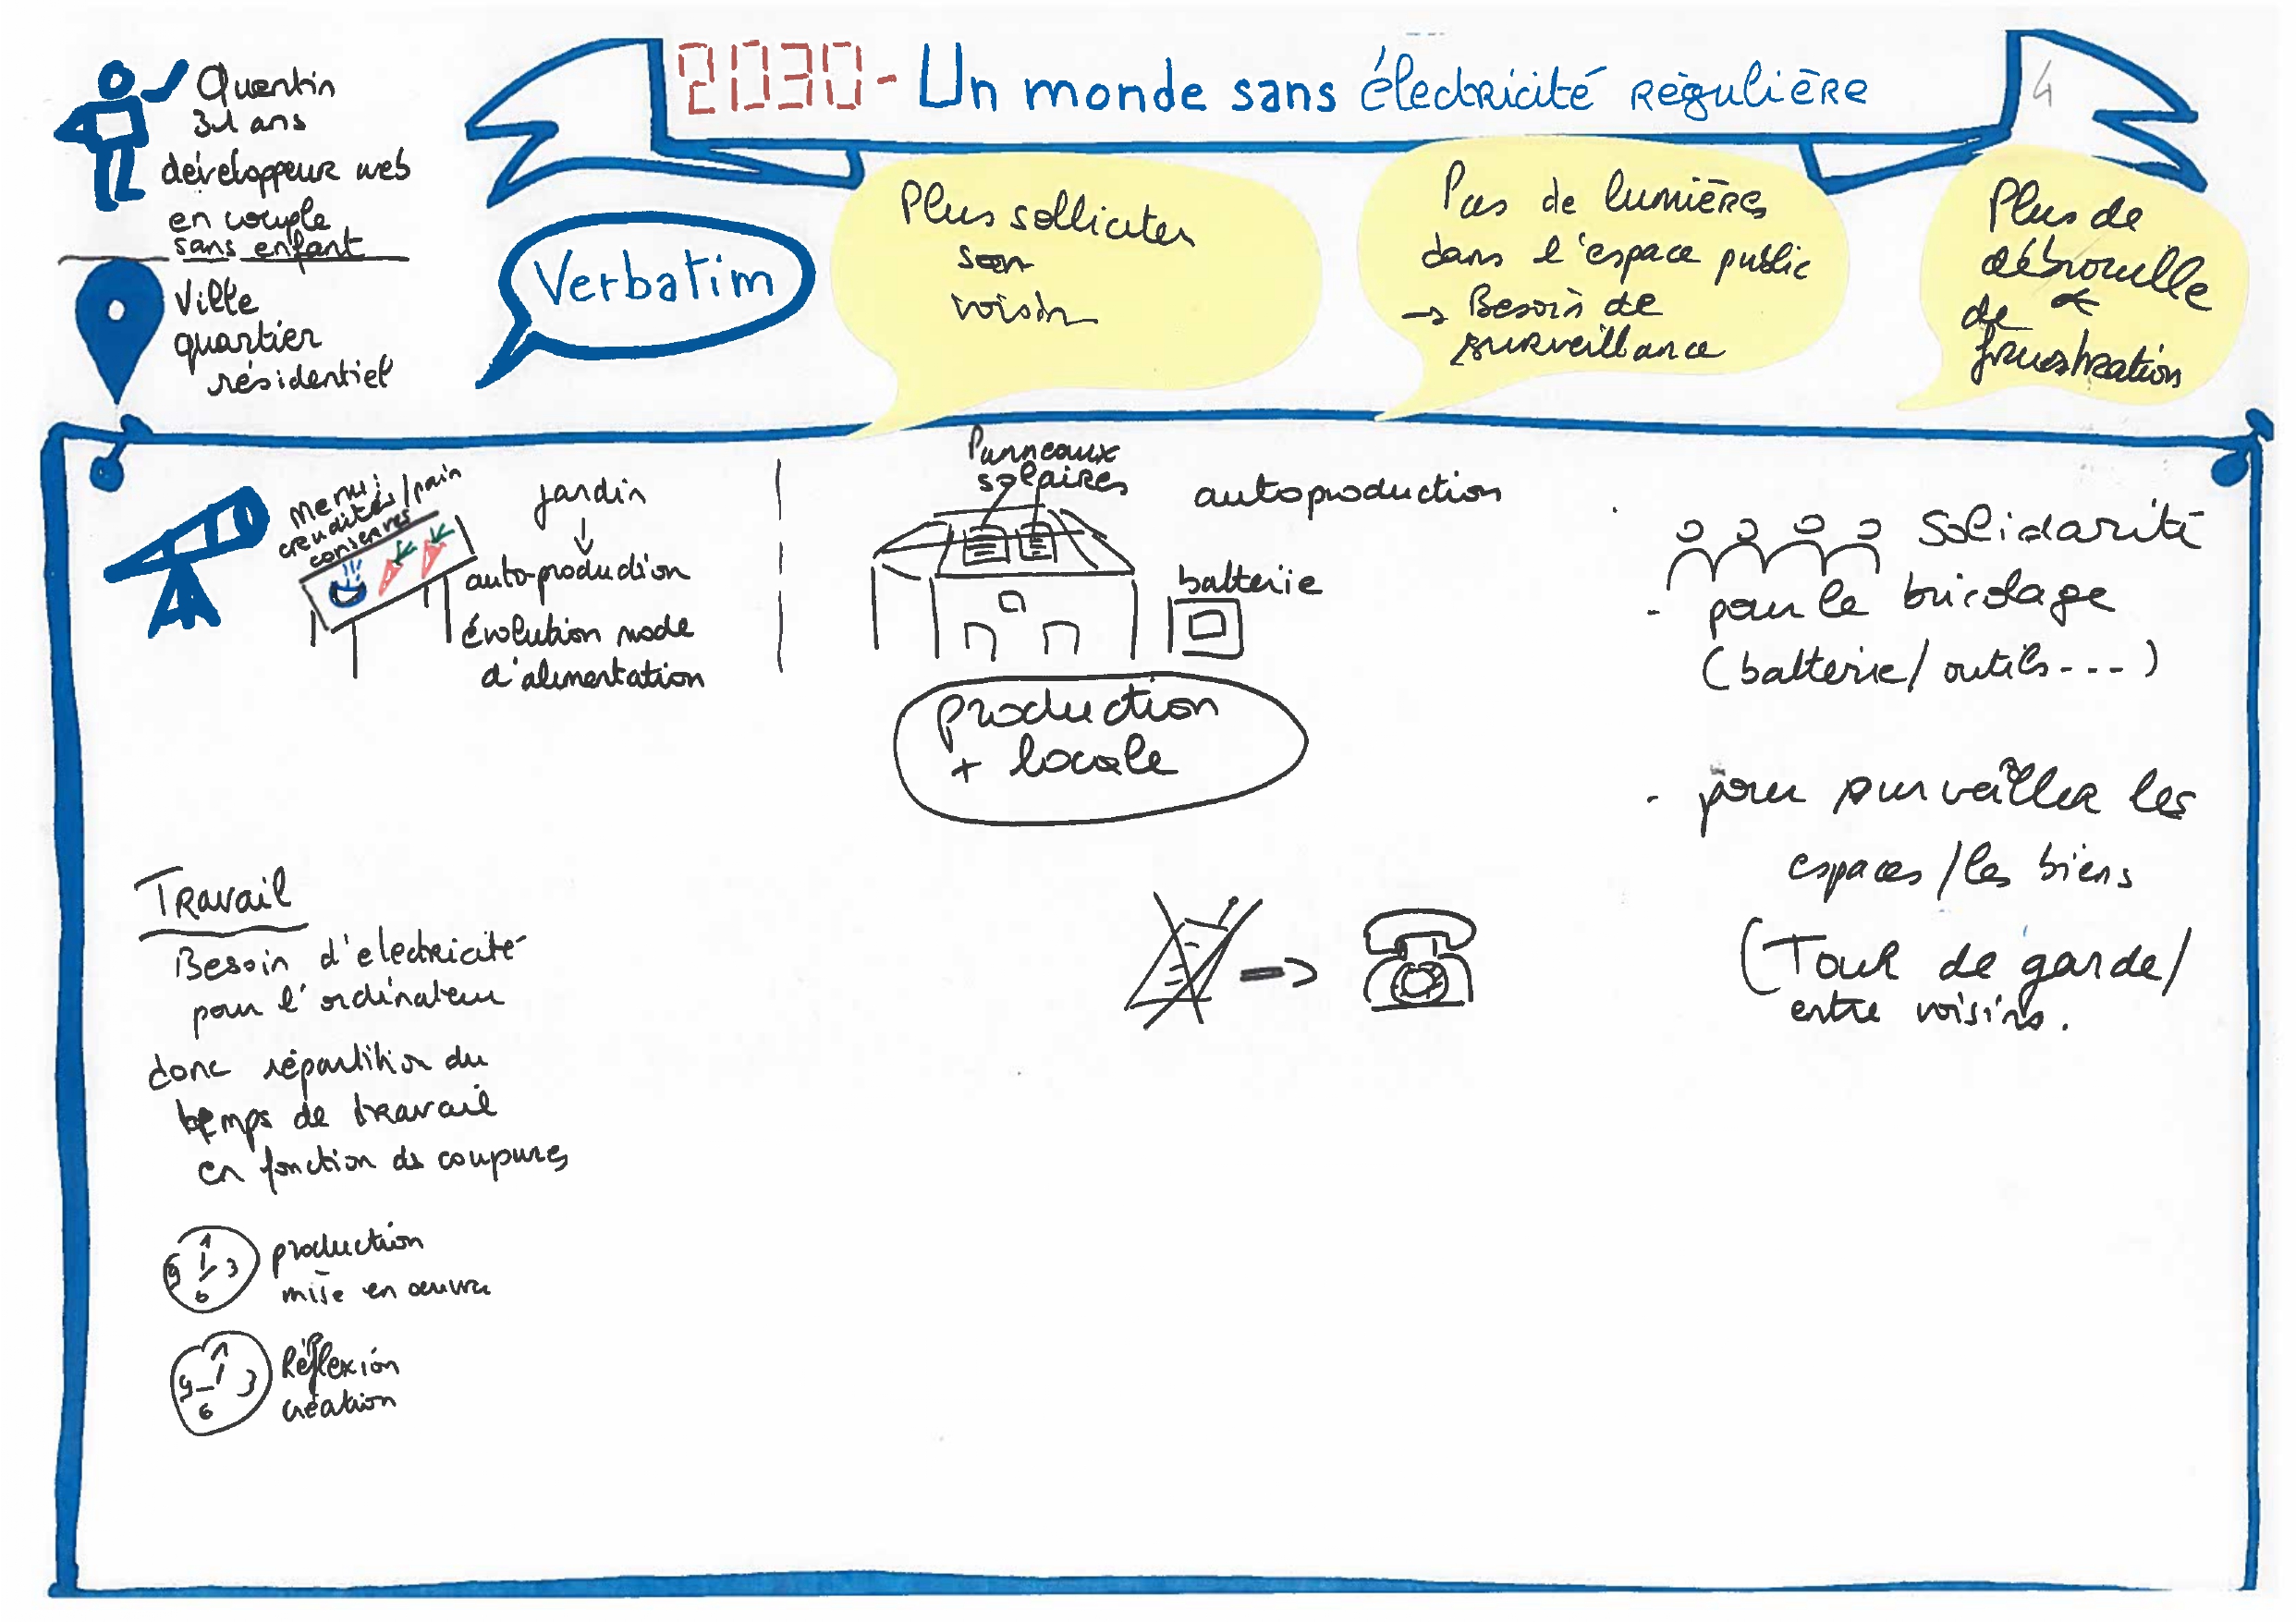 2030 - Un monde sans électricité régulière
4
Quentin
31 ans
développeur web
en couple
sans enfant
Ville
quartier
résidentiel
Verbatim
Plus solliciter
son
voisin
Pas de lumières
dans l'espace public
→ Besoin de
surveillance
Plus de
débrouille
&
de
frustration
Menu:
crudités/pain
conserves
jardin
↓
auto-production
évolution mode
d'alimentation
Panneaux
solaires
autoproduction
batterie
production
+ locale
Solidarité
- pour le bricolage
(batterie/outils---)
- pour surveiller les
espaces/les biens
(Tour de garde/
entre voisins.
Travail
Besoin d'electricité
pour l'ordinateur
donc répartition du
temps de travail
en fonction ds coupures
9 3
6
production
mise en œuvre
9 3
6
Réflexion
création